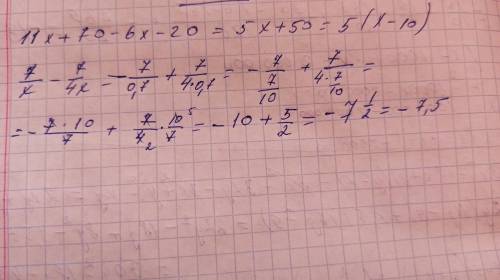 11x+70-6x-20 = 5x+50 = 5(x-10)
7/x - 7/4x = - 7/0,7 + 7/4·0,7 = - 7/(7/10) + 7/(4·7/10) =
= - 7·10/7 + 7/4₂ · 10⁵/7 = - 10 + 5/2 = - 7 1/2 = - 7,5